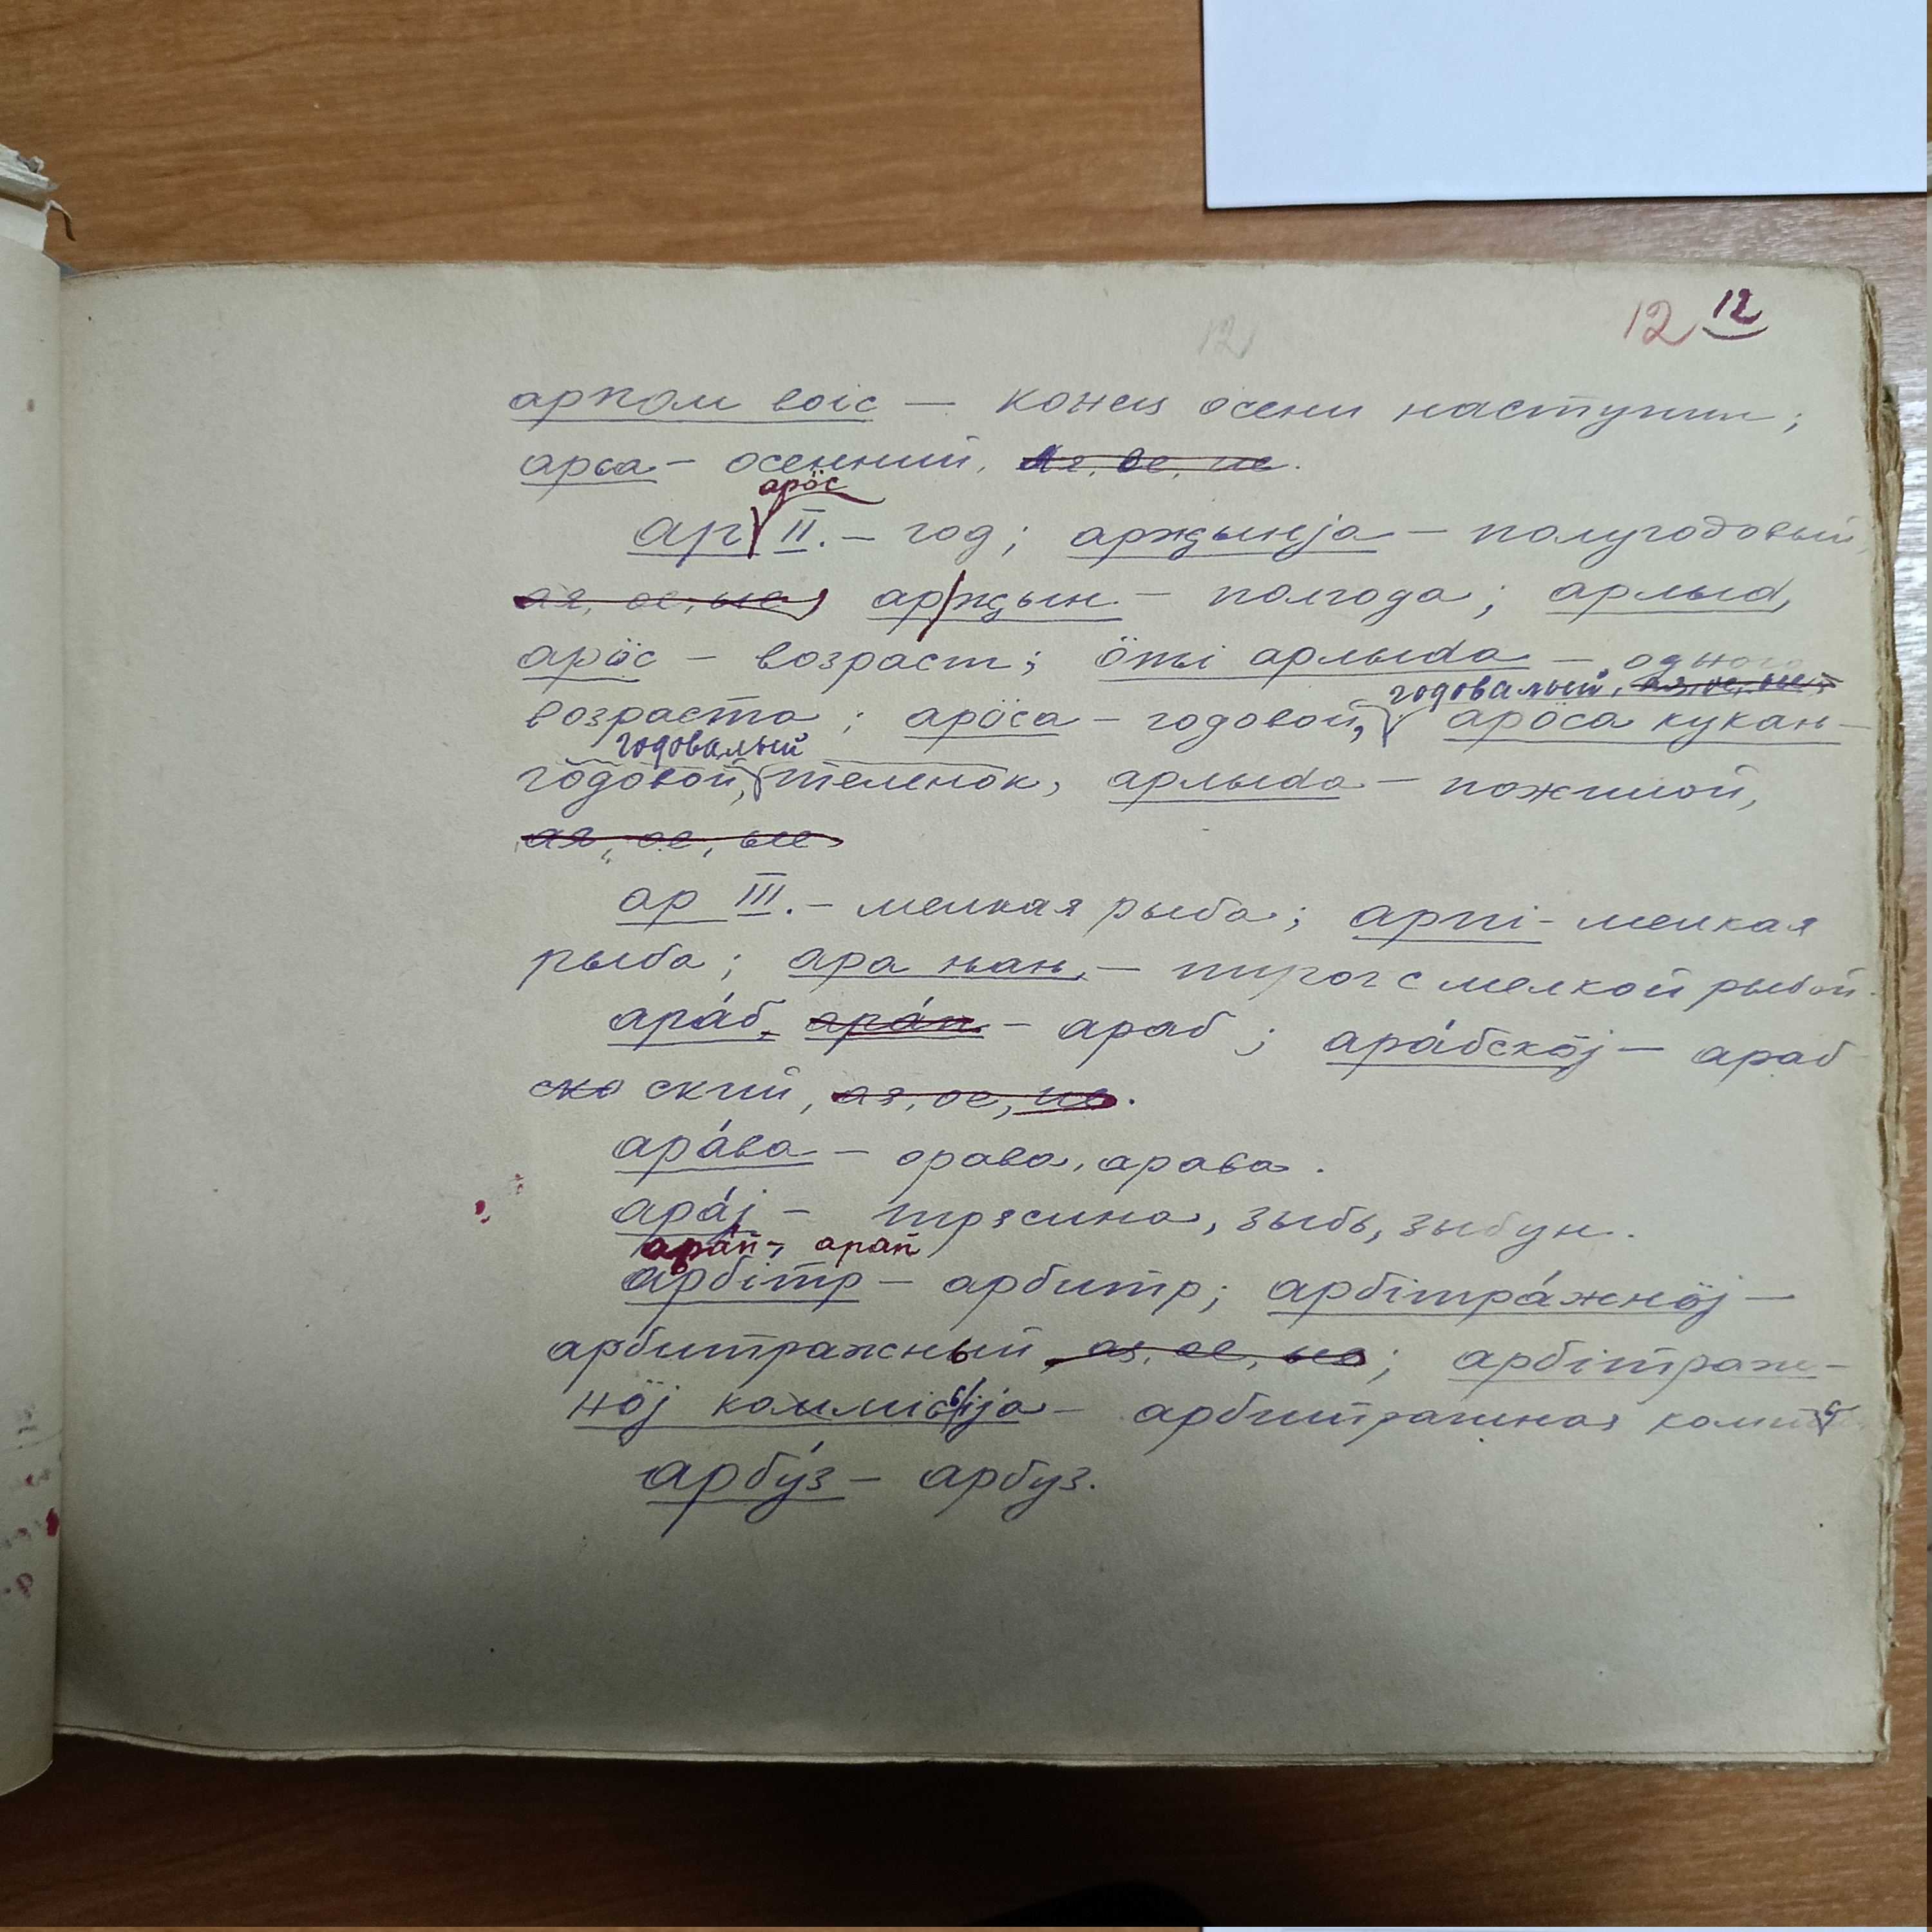 12 12
12
арпом воіс — конец осени наступил;
арса - осенний, ая, ое, ие.
арӧс
ар II. - год; арҗынја - полугодовый,
ая, ое, ые, арҗын - полгода; арлыԁ,
арӧс - возраст; ӧті арлыԁа - одного
годовалый, ая, ое, ые;
возраста; арӧса - годовой, арӧса кукан -
годовалый
годовой, теленок, арлыԁа - пожилой,
ая, ое, ые
ар III. - мелкая рыба; арпі - мелкая
рыба; ара њањ, - пирог с мелкой рыбой.
ара́б, ара́п - араб; ара́бскӧј - араб
ско ский, ая, ое, ие.
ара́ва - орава, арава.
ара́ј - трясина, зыбь, зыбун.
ара́п -, арап
арбі́тр - арбитр; арбітра́жнӧј -
арбитражный, ая, ое, ые; арбітраж-
нӧј коммісіја - арбитражная
арбу́з - арбуз.